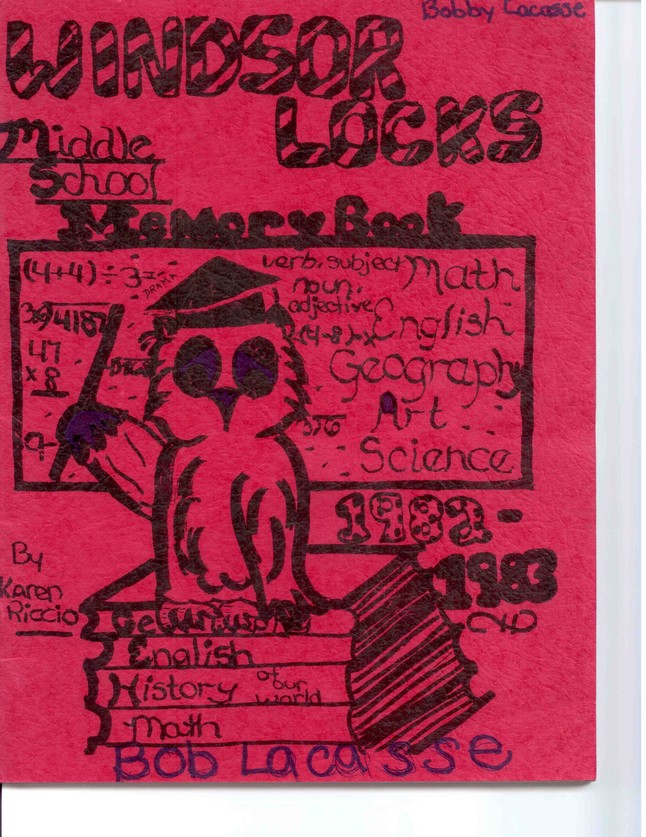 Bobby Lacasse
WINDSOR
LOCKS
Middle
School
Memory Book
(4+4) ÷ 3 =
DRAMA
verb, subject
noun,
adjective
Math
English
Geography
Art
Science
47
x 8
9
1982-
1983
By
Karen
Riccio
English
History of our world
Math
Bob Lacasse